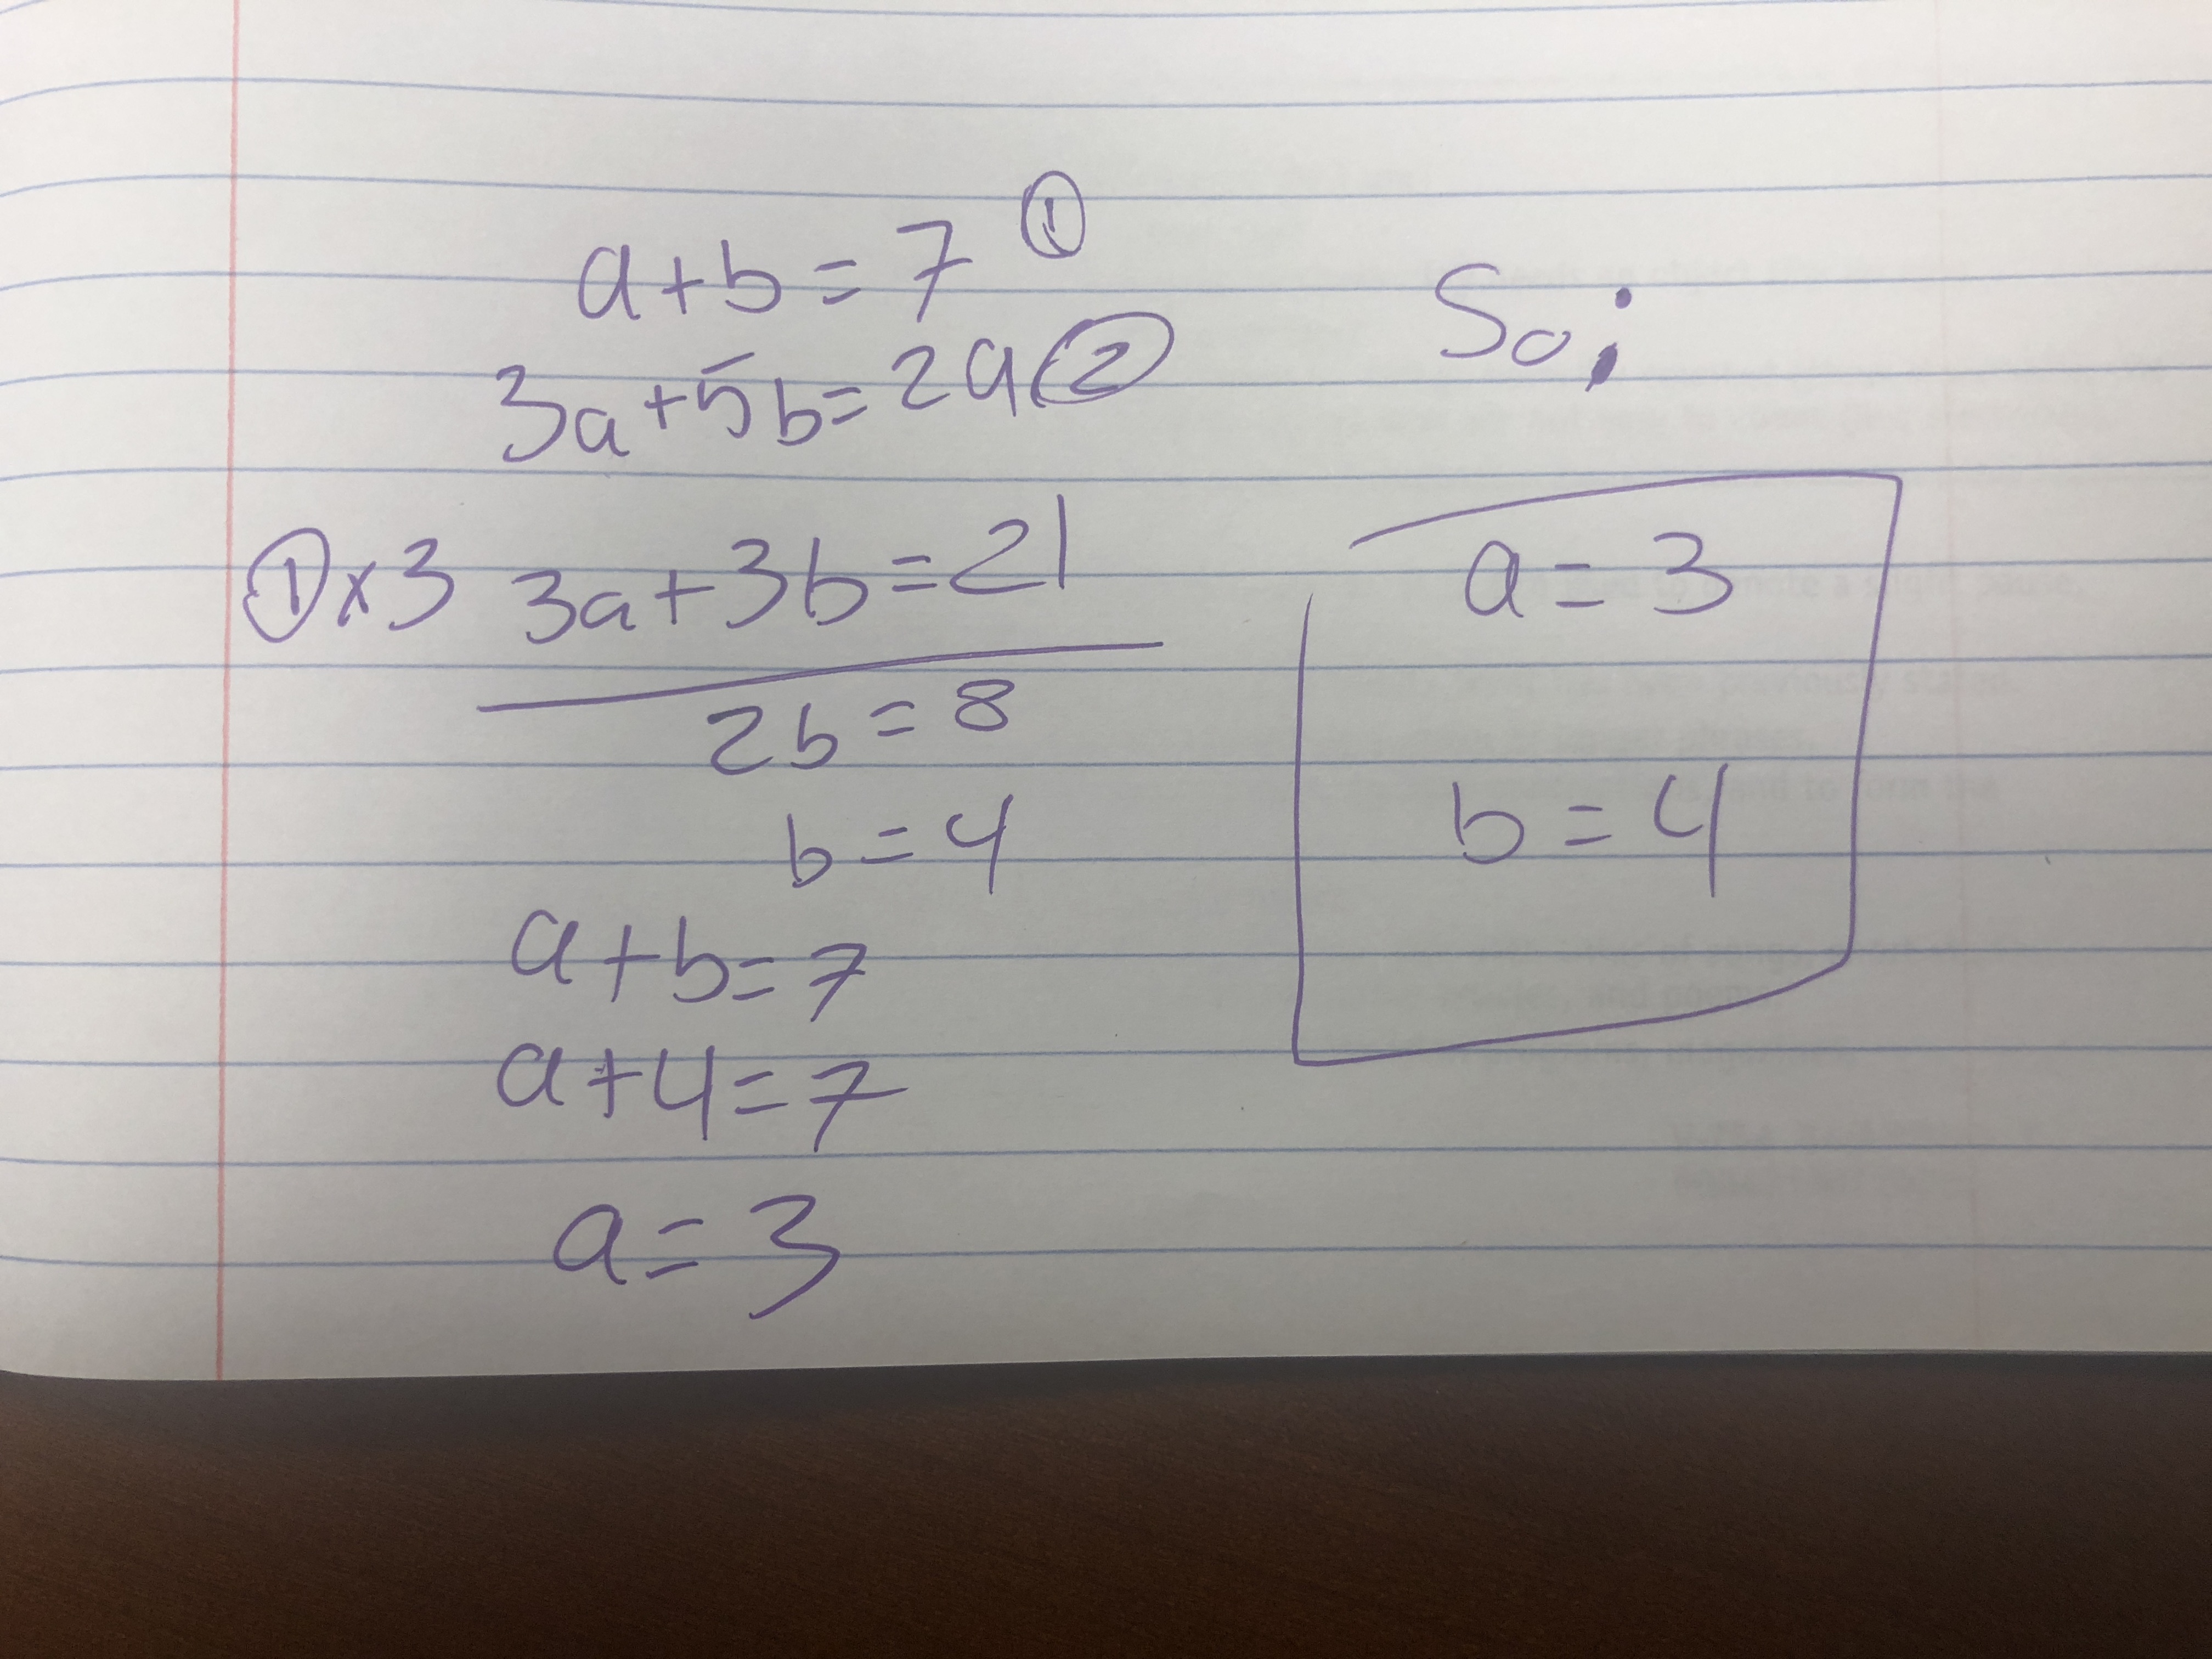 a+b=7 ①
3a+5b=29 ②
①x3 3a+3b=21
2b=8
b=4
a+b=7
a+4=7
a=3
So;
a=3
b=4